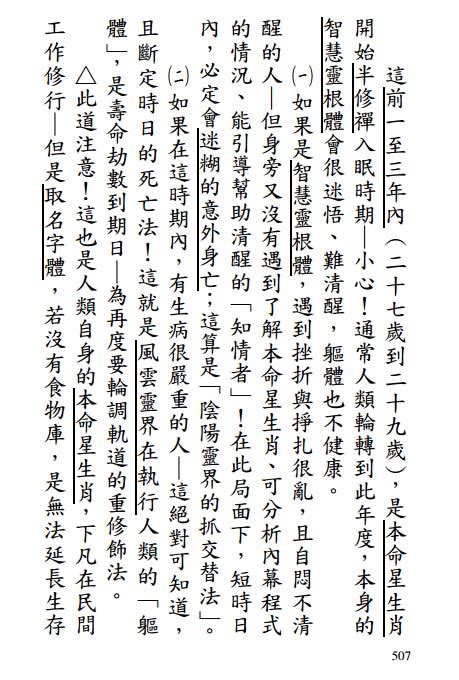 這前一至三年內（二十七歲到二十九歲），是本命星生肖
開始半修禪入眠時期—小心！通常人類輪轉到此年度，本身的
智慧靈根體會很迷悟、難清醒，軀體也不健康。
㈠如果是智慧靈根體，遇到挫折與掙扎很亂，且自悶不清
醒的人—但身旁又沒有遇到了解本命星生肖、可分析內幕程式
的情況、能引導幫助清醒的「知情者」！在此局面下，短時日
內，必定會迷糊的意外身亡；這算是「陰陽靈界的抓交替法」。
㈡如果在這時期內，有生病很嚴重的人—這絕對可知道，
且斷定時日的死亡法！這就是風雲靈界在執行人類的「軀
體」，是壽命劫數到期日—為再度要輪調軌道的重修飾法。
△此道注意！這也是人類自身的本命星生肖，下凡在民間
工作修行—但是取名字體，若沒有食物庫，是無法延長生存
507